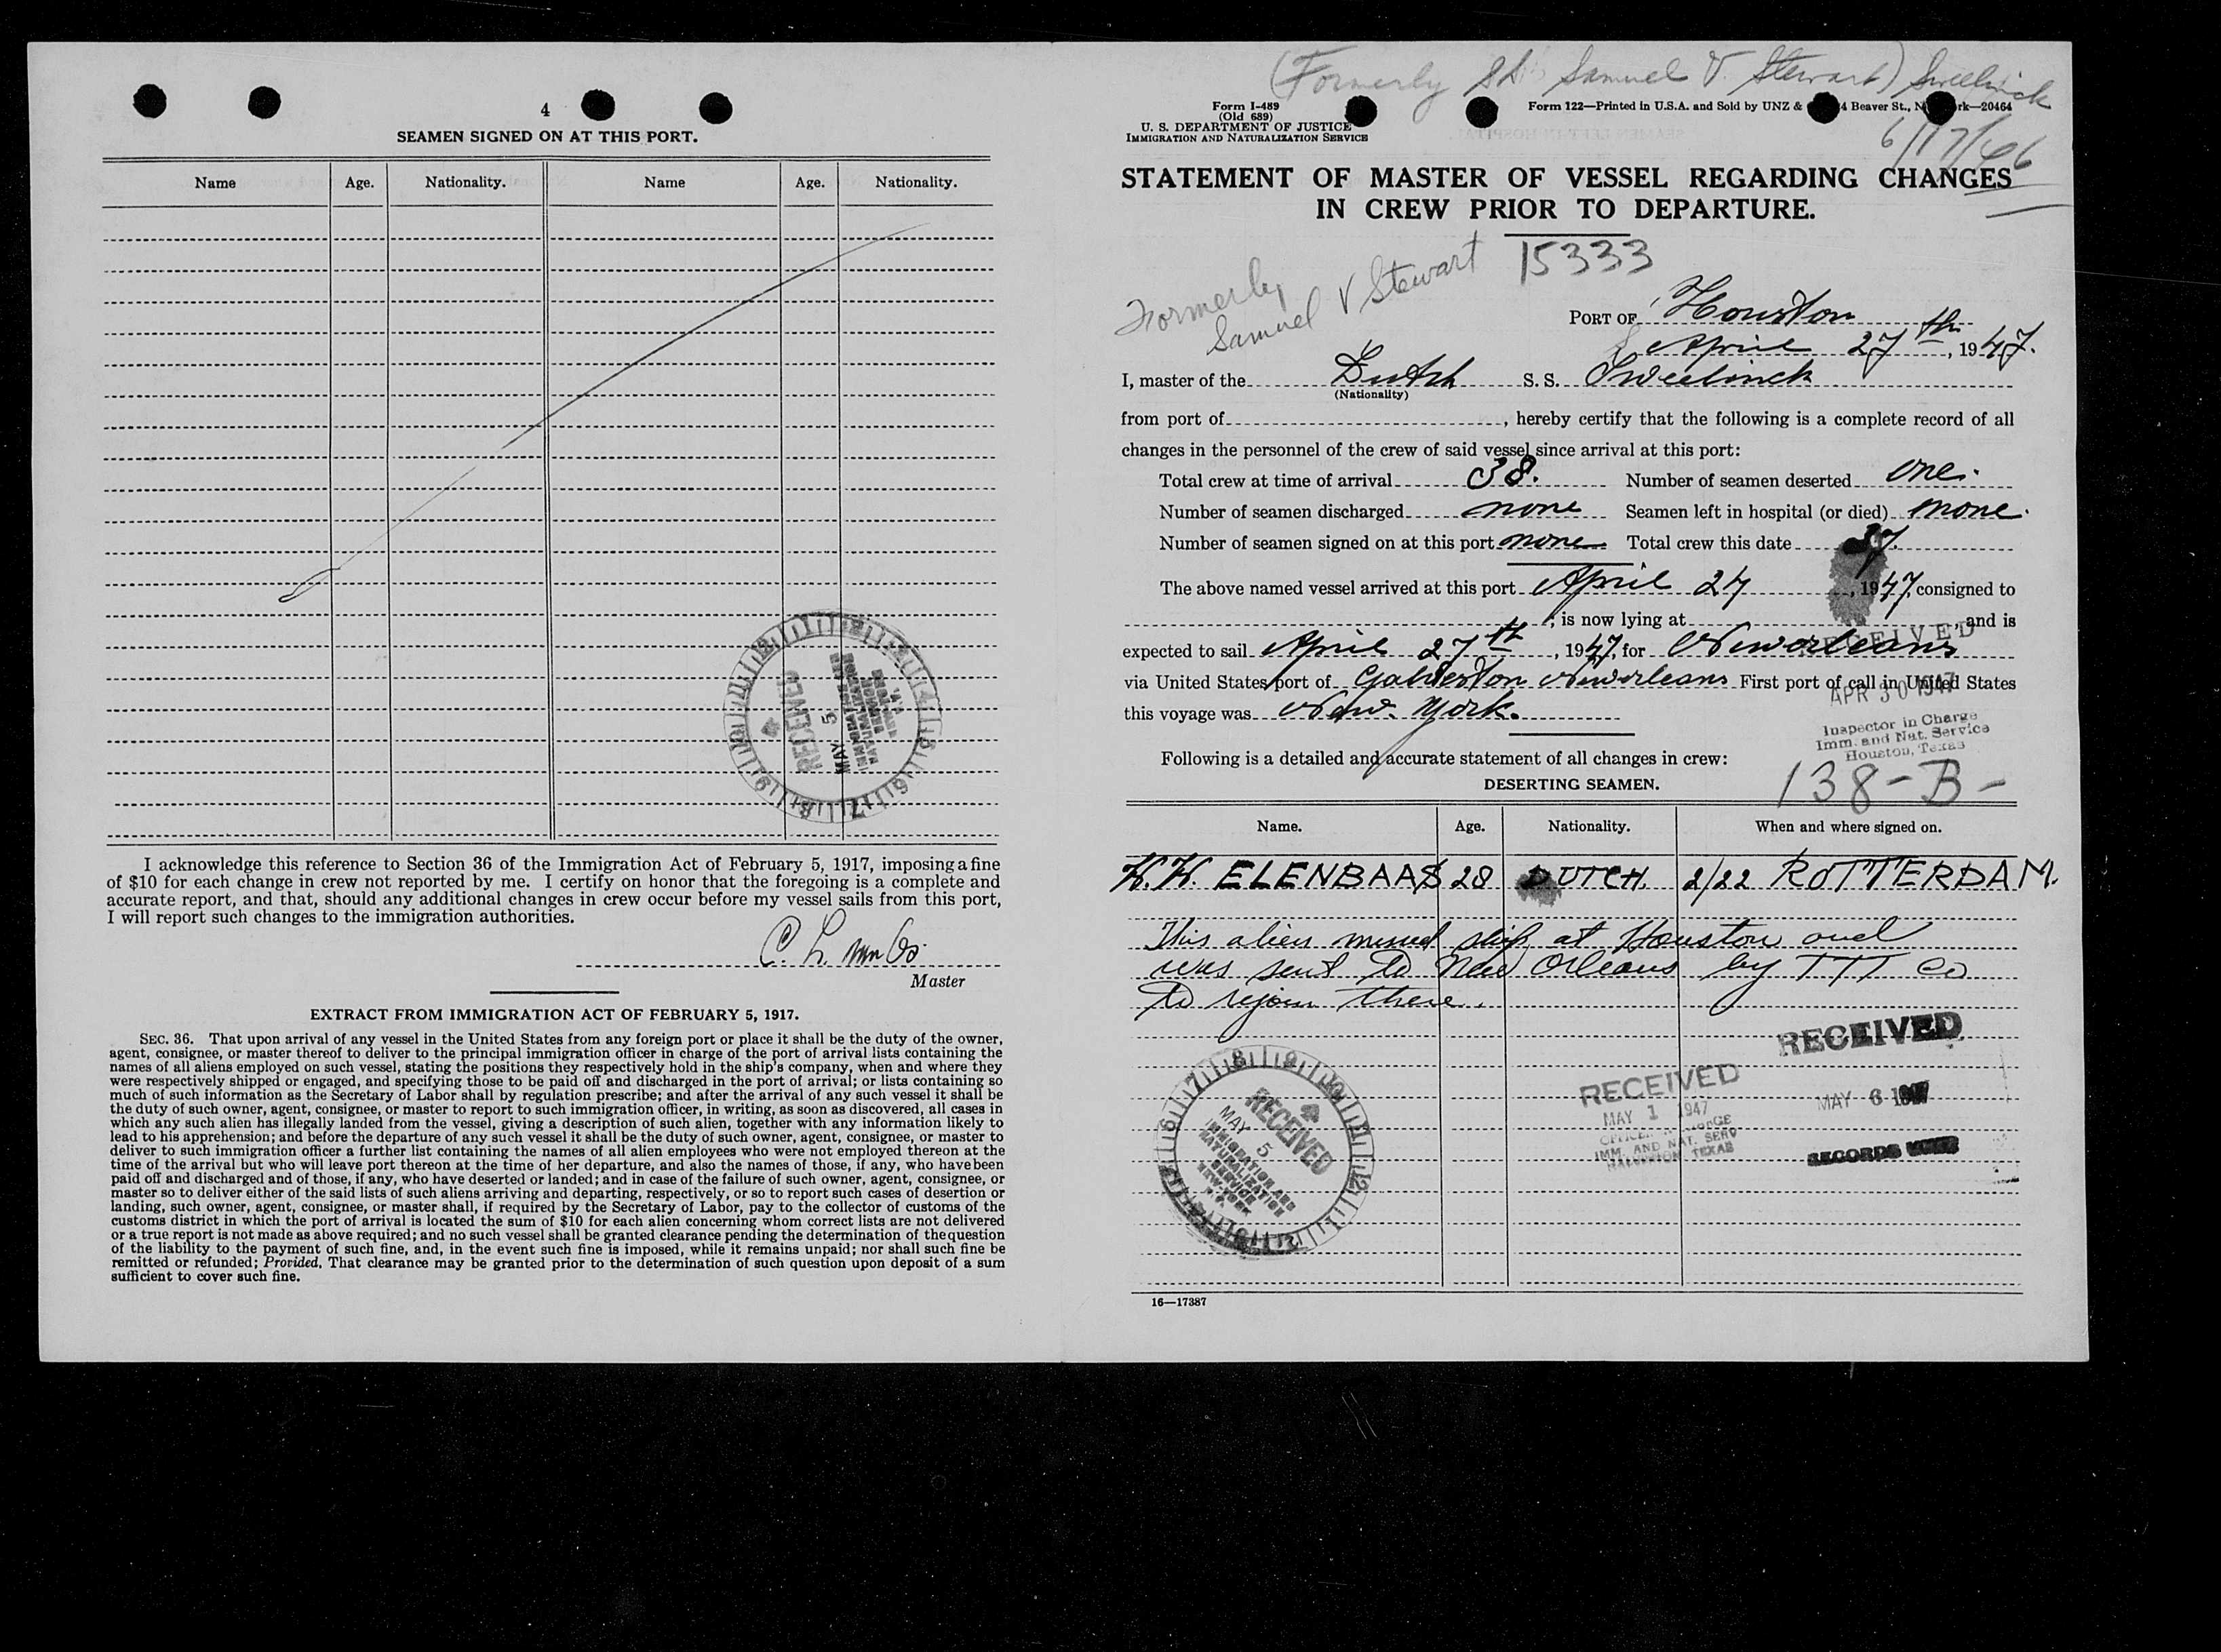 4
SEAMEN SIGNED ON AT THIS PORT.
Name Age. Nationality. Name Age. Nationality.
RECEIVED
MAY 5
I acknowledge this reference to Section 36 of the Immigration Act of February 5, 1917, imposing a fine
of $10 for each change in crew not reported by me. I certify on honor that the foregoing is a complete and
accurate report, and that, should any additional changes in crew occur before my vessel sails from this port,
I will report such changes to the immigration authorities.
Master
EXTRACT FROM IMMIGRATION ACT OF FEBRUARY 5, 1917.
SEC. 36. That upon arrival of any vessel in the United States from any foreign port or place it shall be the duty of the owner,
agent, consignee, or master thereof to deliver to the principal immigration officer in charge of the port of arrival lists containing the
names of all aliens employed on such vessel, stating the positions they respectively hold in the ship's company, when and where they
were respectively shipped or engaged, and specifying those to be paid off and discharged in the port of arrival; or lists containing so
much of such information as the Secretary of Labor shall by regulation prescribe; and after the arrival of any such vessel it shall be
the duty of such owner, agent, consignee, or master to report to such immigration officer, in writing, as soon as discovered, all cases in
which any such alien has illegally landed from the vessel, giving a description of such alien, together with any information likely to
lead to his apprehension; and before the departure of any such vessel it shall be the duty of such owner, agent, consignee, or master to
deliver to such immigration officer a further list containing the names of all alien employees who were not employed thereon at the
time of the arrival but who will leave port thereon at the time of her departure, and also the names of those, if any, who have been
paid off and discharged and of those, if any, who have deserted or landed; and in case of the failure of such owner, agent, consignee, or
master so to deliver either of the said lists of such aliens arriving and departing, respectively, or so to report such cases of desertion or
landing, such owner, agent, consignee, or master shall, if required by the Secretary of Labor, pay to the collector of customs of the
customs district in which the port of arrival is located the sum of $10 for each alien concerning whom correct lists are not delivered
or a true report is not made as above required; and no such vessel shall be granted clearance pending the determination of the question
of the liability to the payment of such fine, and, in the event such fine is imposed, while it remains unpaid; nor shall such fine be
remitted or refunded; Provided, That clearance may be granted prior to the determination of such question upon deposit of a sum
sufficient to cover such fine.
(Formerly SS Samuel V. Stewart) Sweelinck
6/17/46
Form I-489
(Old 689)
U. S. DEPARTMENT OF JUSTICE
IMMIGRATION AND NATURALIZATION SERVICE
Form 122—Printed in U.S.A. and Sold by UNZ & 4 Beaver St., N rk—20464
STATEMENT OF MASTER OF VESSEL REGARDING CHANGES
IN CREW PRIOR TO DEPARTURE.
15333
Formerly
Samuel V Stewart
PORT OF Houston
April 27th, 1947.
I, master of the Dutch S. S. Sweelinck
(Nationality)
from port of , hereby certify that the following is a complete record of all
changes in the personnel of the crew of said vessel since arrival at this port:
Total crew at time of arrival 38. Number of seamen deserted one.
Number of seamen discharged none Seamen left in hospital (or died) none.
Number of seamen signed on at this port none Total crew this date 37.
The above named vessel arrived at this port April 24, 1947, consigned to
, is now lying at , and is
expected to sail April 27th, 1947, for Neworleans
via United States port of Galveston Neworleans First port of call in United States
this voyage was New. York.
RECEIVED
APR 30 1947
Inspector in Charge
Imm. and Nat. Service
Houston, Texas
138-B-
Following is a detailed and accurate statement of all changes in crew:
DESERTING SEAMEN.
Name. Age. Nationality. When and where signed on.
H.H. ELENBAAS 28 DUTCH. 2/22 ROTTERDAM.
This alien missed ship at Houston and
was sent to New Orleans by TTT Co
to rejoin there.
RECEIVED
MAY 5
IMMIGRATION AND
NATURALIZATION
SERVICE
NEW YORK
N.Y.
RECEIVED
MAY 1 1947
IMM. AND NAT. SERV
GALVESTON TEXAS
RECEIVED
MAY 6 1947
RECORDS
16—17387